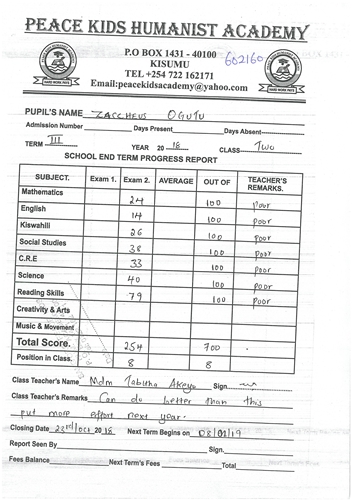 PEACE KIDS HUMANIST ACADEMY
P.O BOX 1431 - 40100
KISUMU
TEL +254 722 162171
Email:peacekidsacademy@yahoo.com
602160
HARD WORK PAYS HARD WORK PAYS
PUPIL'S NAME ZACCHEUS OGUTU
Admission Number Days Present Days Absent
TERM III YEAR 20 18 CLASS TWO
SCHOOL END TERM PROGRESS REPORT
SUBJECT. Exam 1. Exam 2. AVERAGE OUT OF TEACHER'S REMARKS.
Mathematics 24 100 poor
English 14 100 poor
Kiswahili 26 100 poor
Social Studies 38 100 poor
C.R.E 33 100 poor
Science 40 100 poor
Reading Skills 79 100 poor
Creativity & Arts
Music & Movement
Total Score. 254 700
Position in Class. 8 8
Class Teacher's Name Mdm Tabitha Akeyo Sign
Class Teacher's Remarks Can do better than this
put more effort next year.
Closing Date 23rd/Oct 2018 Next Term Begins on 03/01/19
Report Seen By Sign.
Fees Balance Next Term's Fees Total